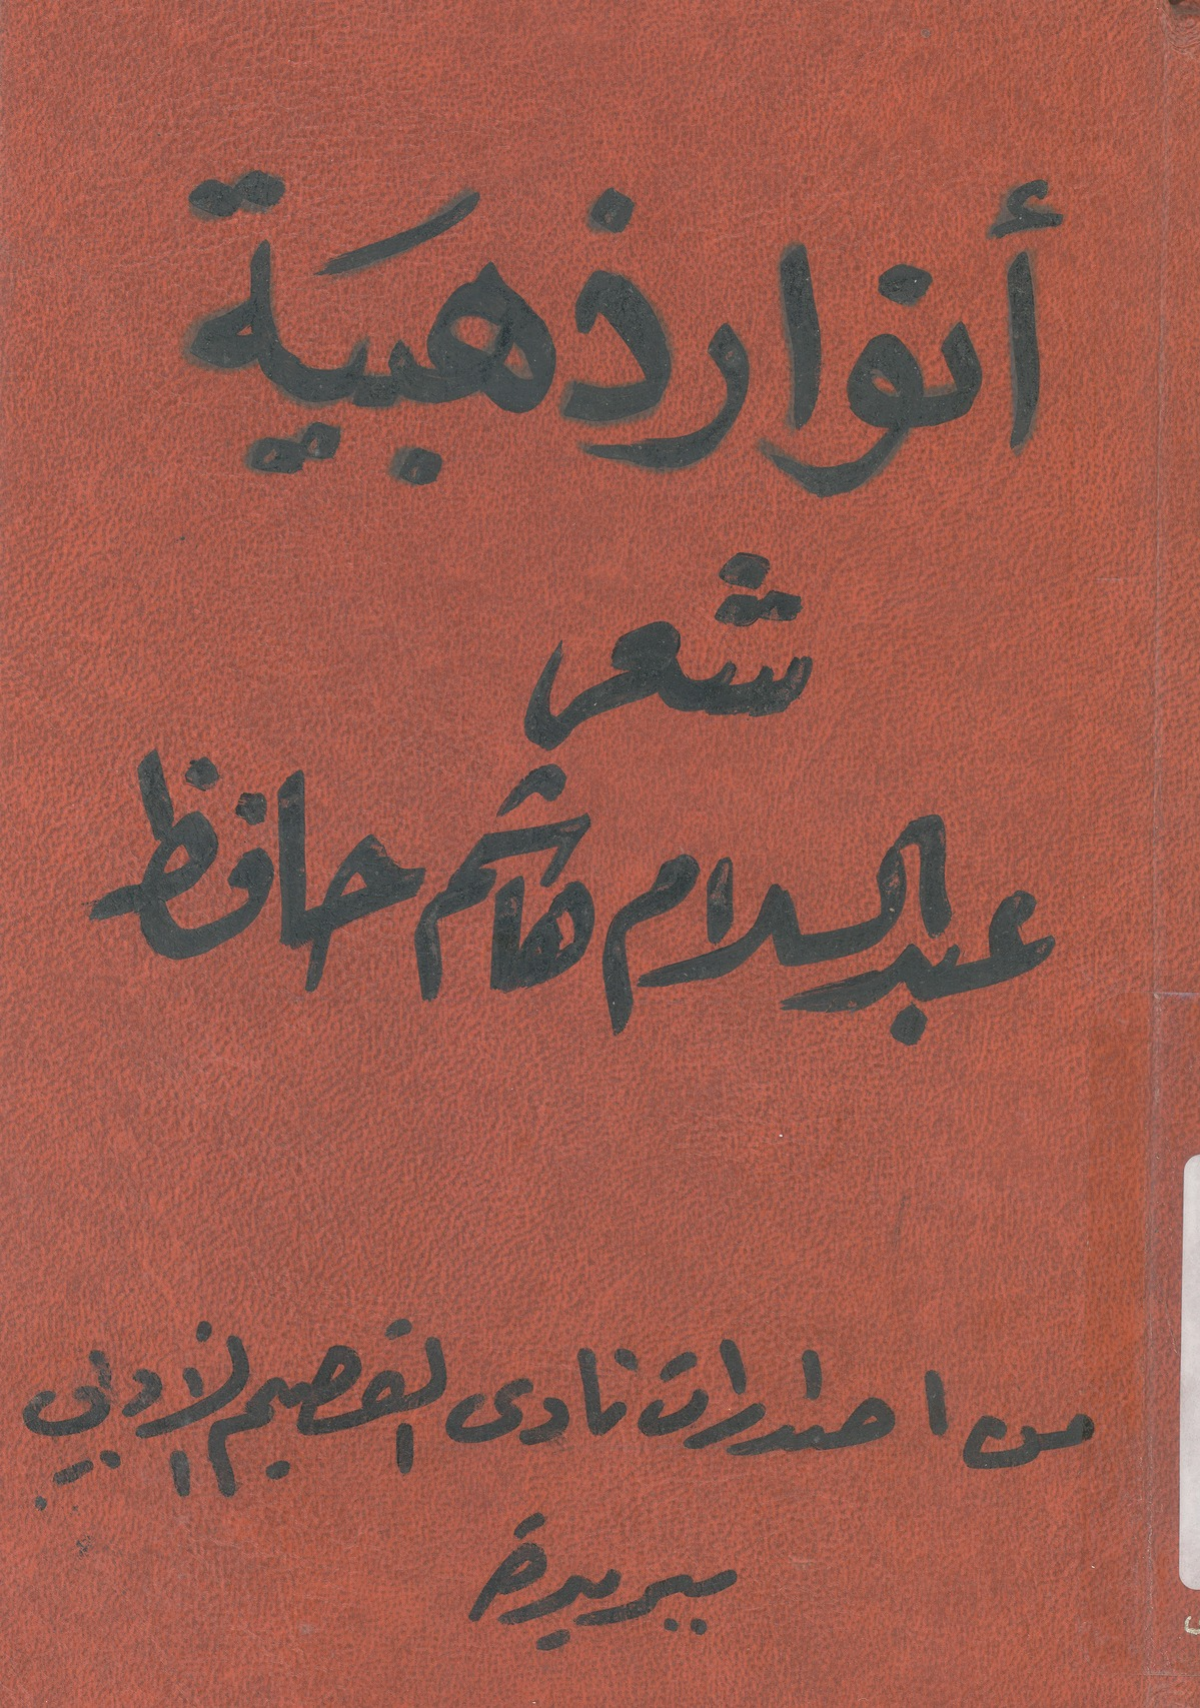 أنوار ذهبية
شعر
عبدالسلام هاشم حافظ
من اصدارات نادى القصيم الأدبي
ببريدة